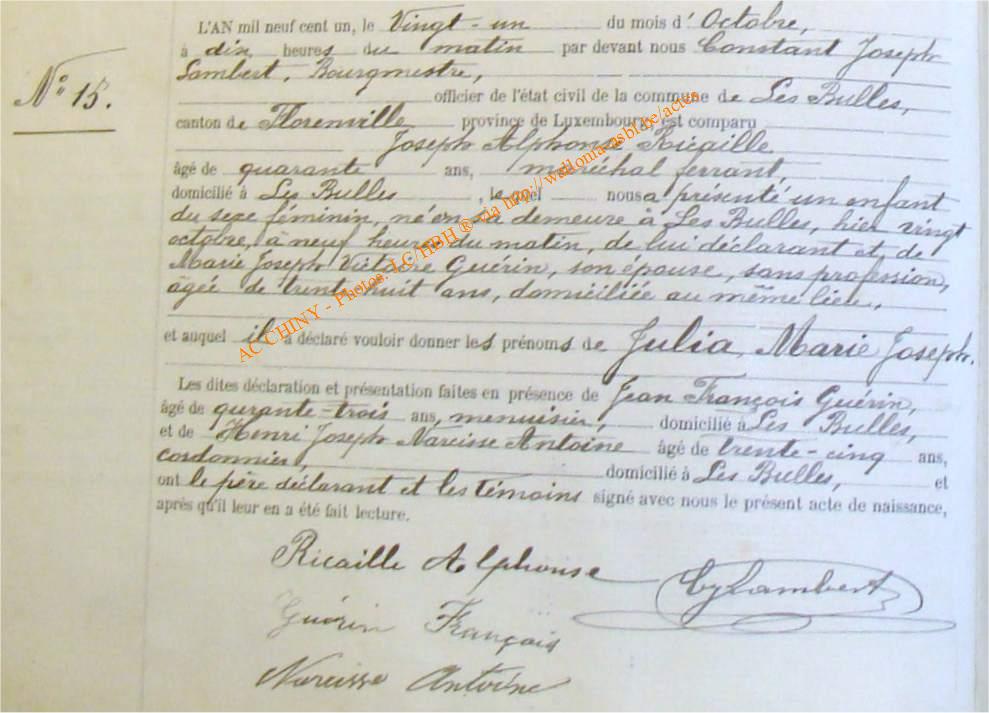 L'AN mil neuf cent un, le Vingt-un du mois d'Octobre,
à dix heures du matin par devant nous Constant Joseph
Lambert, Bourgmestre,
N° 15.
officier de l'état civil de la commune de Les Bulles,
canton de Florenville province de Luxembourg, est comparu
Joseph Alphonse Ricaille
âgé de quarante ans, maréchal ferrant,
domicilié à Les Bulles, lequel nous a présenté un enfant
du sexe féminin, né en sa demeure à Les Bulles, hier vingt
octobre, à neuf heures du matin, de lui déclarant et de
Marie Joseph Victoire Guérin, son épouse, sans profession,
âgée de trente huit ans, domiciliée au même lieu,
et auquel il a déclaré vouloir donner les prénoms de Julia Marie Joseph.
Les dites déclaration et présentation faites en présence de Jean François Guérin,
âgé de qurante-trois ans, menuisier, domicilié à Les Bulles,
et de Henri Joseph Narcisse Antoine âgé de trente-cinq ans,
cordonnier, domicilié à Les Bulles, et
ont le père déclarant et les témoins signé avec nous le présent acte de naissance,
après qu'il leur en a été fait lecture.
Ricaille Alphonse
CJLambert
Guérin François
Narcisse Antoine
AC CHINY - Photos. LC/HBH ® via http://wallonia-asbl.be/actes